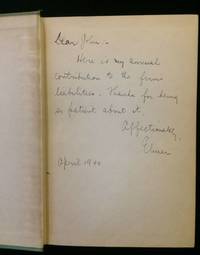 Dear John:-
Here is my annual
contribution to the firm's
liabilities. Thanks for being
so patient about it.
Affectionately,
Elmer
April 1940